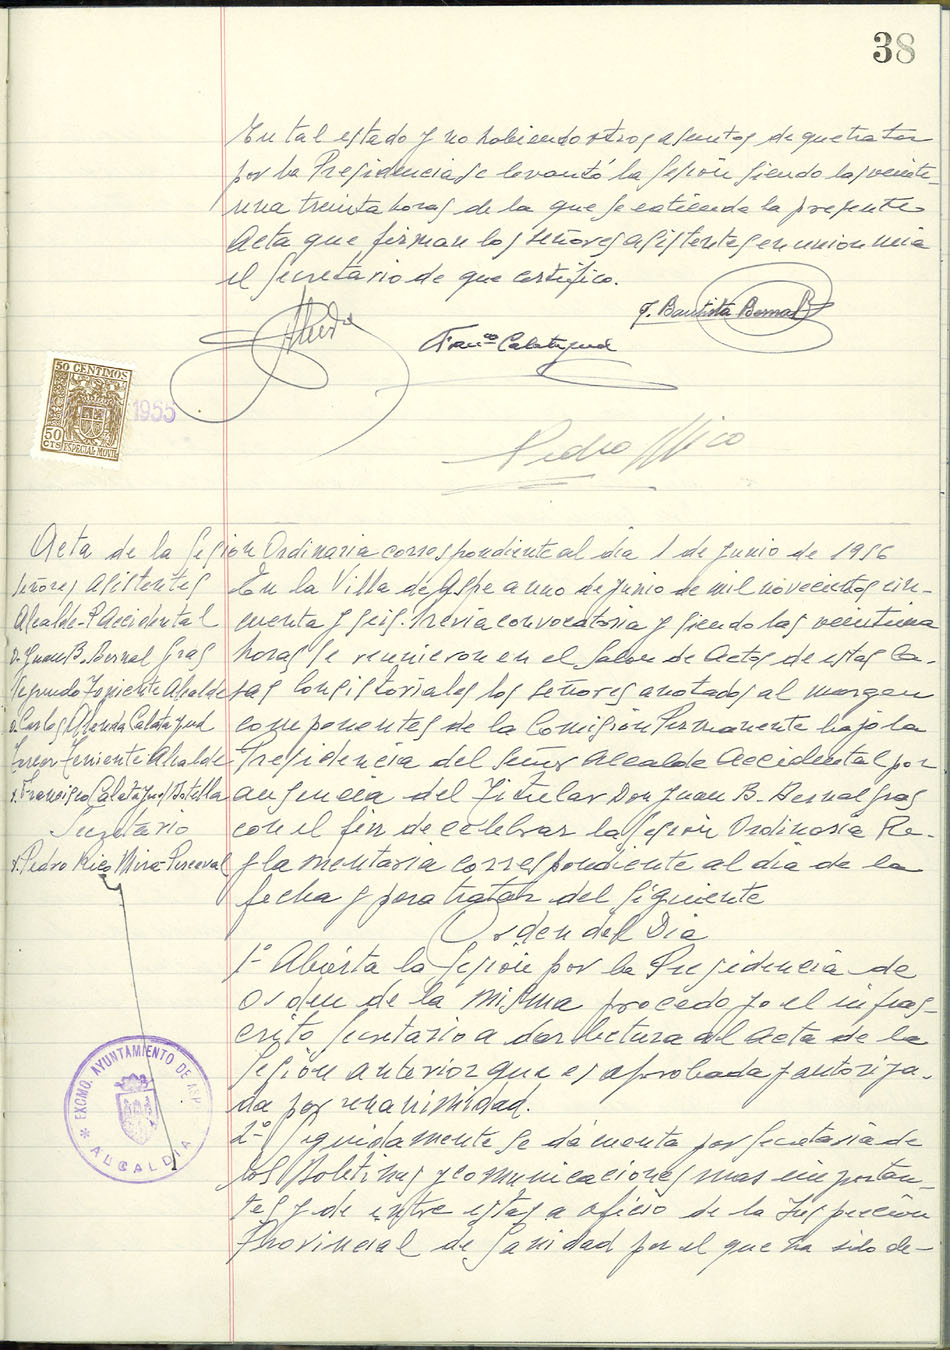 38
En tal estado y no habiendo otros asuntos de que tratar
por la Presidencia se levantó la sesión siendo las veinte-
una treinta horas de la que se extiende la presente
Acta que firman los señores asistentes en union mia
el Secretario de que certifico.
J. Bautista Bernal
Franco Calatayud
50 CENTIMOS
50 CTS ESPECIAL MOVIL
1955
Pedro Rico
Acta de la Sesion Ordinaria correspondiente al dia 1 de junio de 1956
Señores Asistentes
Alcalde-P Accidental
D. Juan B. Bernal Gras
Segundo Teniente Alcalde
D. Carlos Almoda Calatayud
Tercer Teniente Alcalde
D. Francisco Calatayud Botella
Secretario
D. Pedro Rico Mira-Perceval
En la Villa de Aspe a uno de junio de mil novecientos cin-
cuenta y seis. Previa convocatoria y siendo las veintiuna
horas se reunieron en el Salon de Actos de estas Ca-
sas Consistoriales los señores anotados al margen
componentes de la Comisión Permanente bajo la
Presidencia del Señor Alcalde Accidental por
ausencia del Titular Don Juan B. Bernal Gras
con el fin de celebrar la sesión Ordinaria Re-
glamentaria correspondiente al dia de la
fecha y para tratar del siguiente
Orden del Dia
1º- Abierta la Sesión por la Presidencia de
orden de la misma procedo yo el infras-
crito Secretario a dar lectura al acta de la
sesión anterior que es aprobada y autoriza-
da por unanimidad.
2º- Seguidamente se da cuenta por Secretaria de
los Boletines y comunicaciones mas importan-
tes y de entre estas a oficio de la Inspección
Provincial de Sanidad por el que ha sido de-
* EXCMO. AYUNTAMIENTO DE ASPE
ALCALDIA